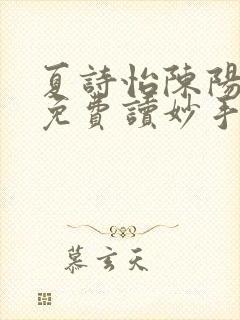 夏詩怡陳陽
免費讀妙手
慕玄天